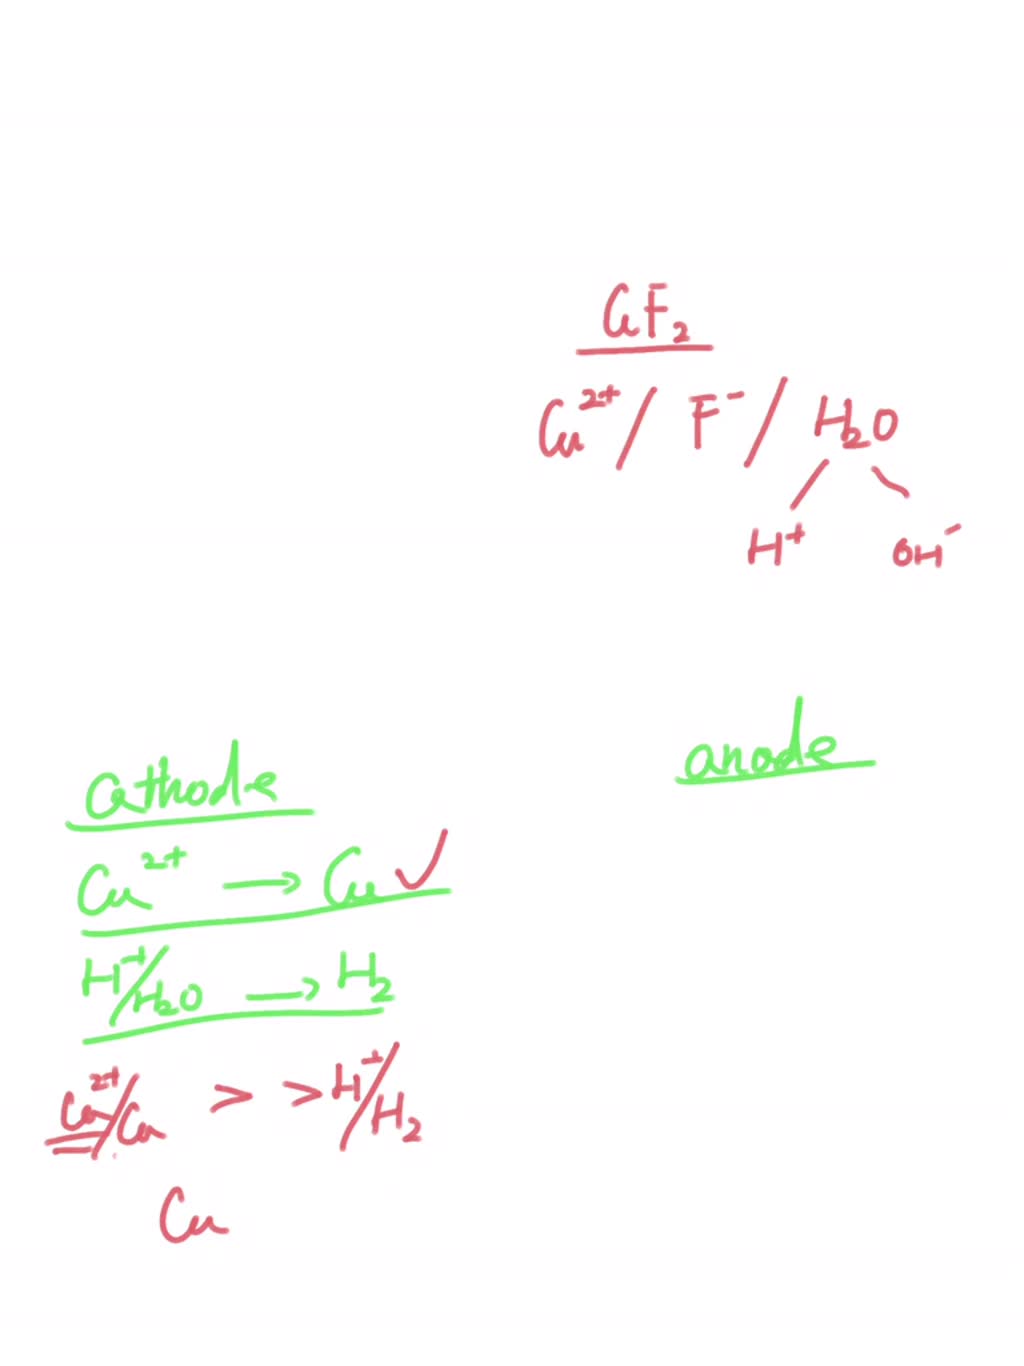 CuF₂
Cu²⁺ / F⁻ / H₂O
H⁺ OH⁻
anode
cathode
Cu²⁺ → Cu ✓
H⁺/H₂O → H₂
Cu²⁺/Cu > > H⁺/H₂
Cu